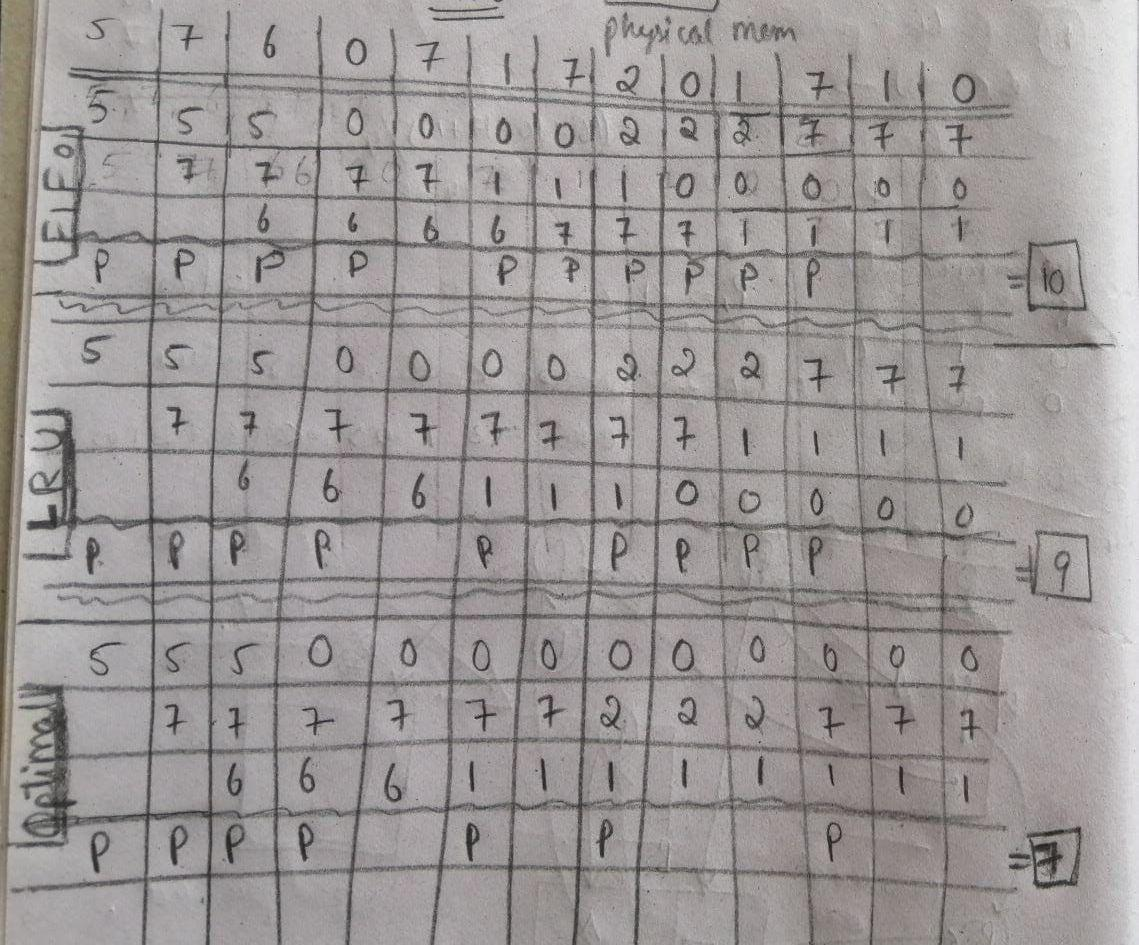 physical mem
5 7 6 0 7 1 7 2 0 1 7 1 0
FIFO
5 5 5 0 0 0 0 2 2 2 7 7 7
7 7 7 7 1 1 1 0 0 0 0 0
6 6 6 6 7 7 7 1 1 1 1
P P P P P P P P P P = 10
LRU
5 5 5 0 0 0 0 2 2 2 7 7 7
7 7 7 7 7 7 7 7 1 1 1 1
6 6 6 1 1 1 0 0 0 0 0
P P P P P P P P P = 9
Optimal
5 5 5 0 0 0 0 0 0 0 0 0 0
7 7 7 7 7 7 2 2 2 7 7 7
6 6 6 1 1 1 1 1 1 1 1
P P P P P P P = 7